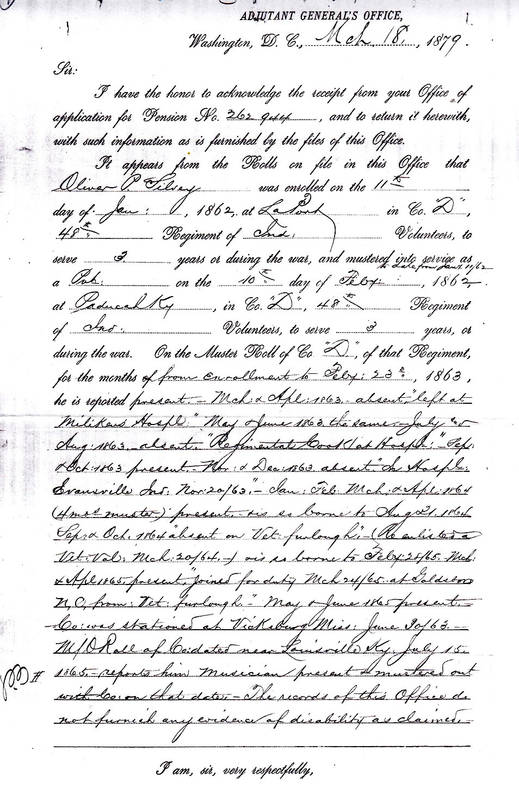 ADJUTANT GENERAL'S OFFICE,
Washington, D. C., Mch. 18, 1879.
Sir:
I have the honor to acknowledge the receipt from your Office of
application for Pension No. 262944, and to return it herewith,
with such information as is furnished by the files of this Office.
It appears from the Rolls on file in this Office that
Oliver P. was enrolled on the 11th
day of Jan:, 1862, at LaPort in Co. "D",
48th Regiment of Ind: Volunteers, to
serve 3 years or during the war, and mustered into service as
to date from Jany 11/62
a Pvt. on the 10th day of Feby:, 1862
at Paducah Ky, in Co. "D", 48th Regiment
of Ind: Volunteers, to serve 3 years, or
during the war. On the Muster Roll of Co "D", of that Regiment,
for the months of from enrollment to Feby: 23d, 1863,
he is reported present - Mch & Apl: 1863. absent "left at
Milikens Hospl." May & June 1863 the same - July &
Aug: 1863 - absent. "Regimental Cook at Hospl:" Sep:
& Oct: 1863 present - Nov: & Dec: 1863 absent "In Hospl:
Evansville Ind: Nov: 20/63." - Jan: Feb: Mch: & Apl: 1864
(4 mos muster) present - is so borne to Aug 31, 1864
Sep: & Oct: 1864 "absent on Vet: furlough" - (Re enlisted a
Vet: Vol: Mch: 20/64. -) is so borne to Feby: 28/65 - Mch:
& Apl 1865 present, "joined for duty Mch 24/65 at Goldsboro
N.C. from Vet: furlough" - May & June 1865 present. -
Co: was stationed at Vicksburg Miss: June 30/63. -
M/O Roll of Co: dated near Louisville Ky: July 15
1865 - reports him Musician present & mustered out
with Co: on that date. - The records of this Office do
not furnish any evidence of disability as claimed. -
I am, sir, very respectfully,